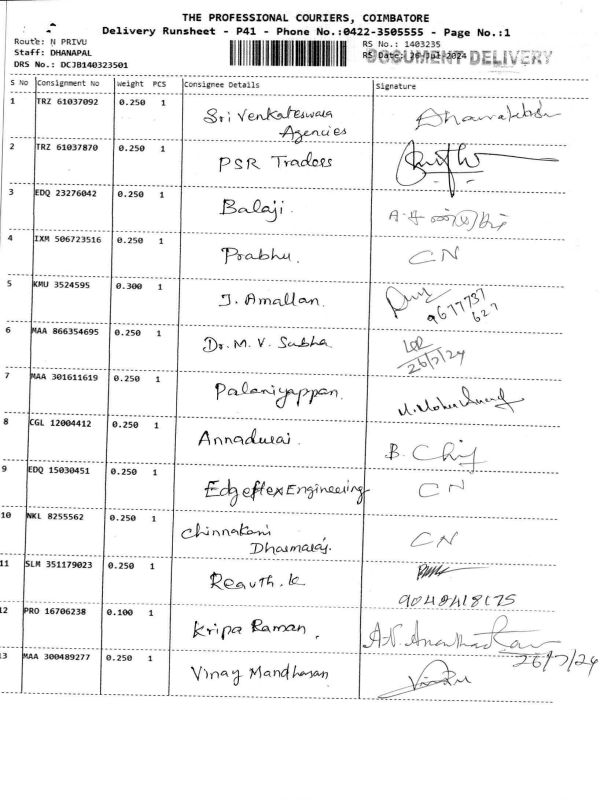 THE PROFESSIONAL COURIERS, COIMBATORE
Delivery Runsheet - P41 - Phone No.:0422-3505555 - Page No.:1
Route: N PRIVU
Staff: DHANAPAL
DRS No.: DCJB140323501
RS No.: 1403235
RS Date: 26-Jul-2024
DOCUMENT DELIVERY
S No Consignment No Weight PCS Consignee Details Signature
1 TRZ 61037092 0.250 1 Sri Venkateswara
Agencies
2 TRZ 61037870 0.250 1 PSR Traders
3 EDQ 23276042 0.250 1 Balaji.
4 IXM 506723516 0.250 1 Prabhu. CN
5 KMU 3524595 0.300 1 J. Amallan.
9677737
627
6 MAA 866354695 0.250 1 Dr. M. V. Sabha
26/7/24
7 MAA 301611619 0.250 1 Palaniyappan.
8 CGL 12004412 0.250 1 Annadurai.
9 EDQ 15030451 0.250 1 Edgeflex Engineering CN
10 NKL 8255562 0.250 1 Chinnakani
Dharmaraj. CN
11 SLM 351179023 0.250 1 Revuth. K
9040418175
12 PRO 16706238 0.100 1 Kripa Raman.
26/7/24
13 MAA 300489277 0.250 1 Vinay Mandharan